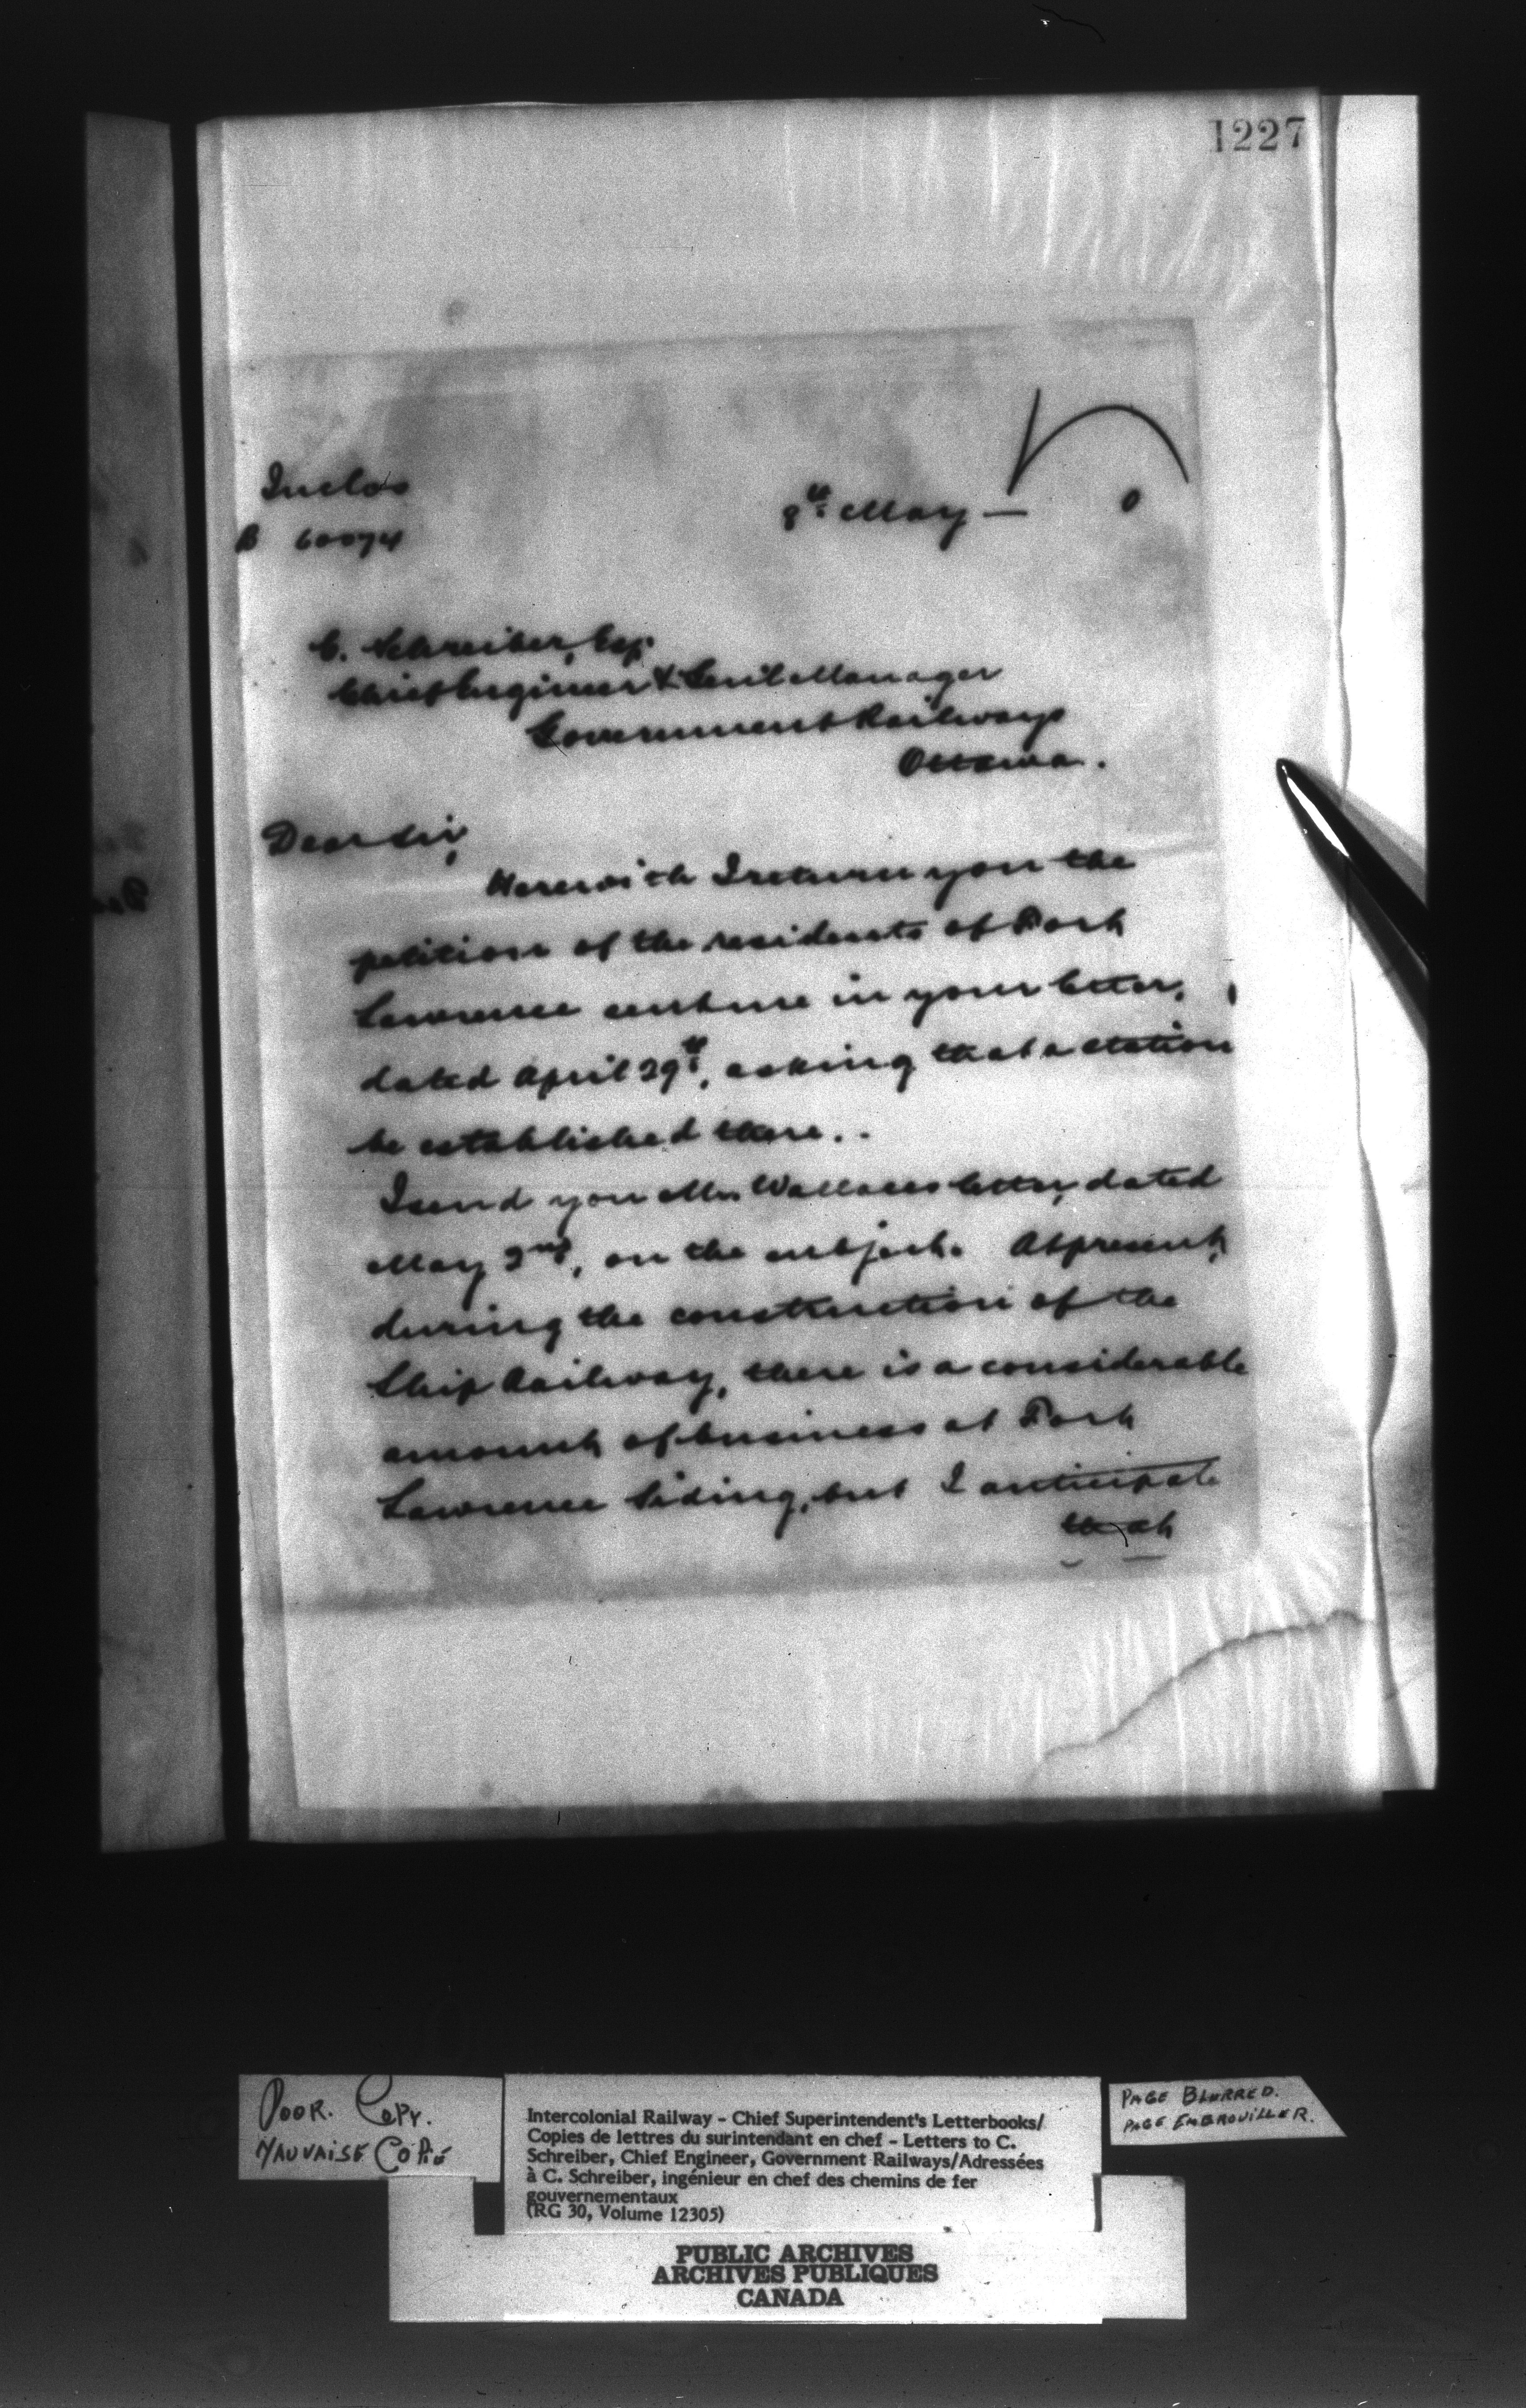 1227
Inclos
B 60074
8th May — 0
C. Schreiber, Esq.
Chief Engineer & Genl Manager
Government Railways
Ottawa.
Dear Sir,
Herewith I return you the
petition of the residents of Fort
Lawrence sent me in your letter,
dated April 29th, asking that a station
be established there..
I send you Mr Wallaces letter, dated
May 2nd, on the subject. At present,
during the construction of the
Ship Railway, there is a considerable
amount of business at Fort
Lawrence Siding, but I anticipate
that
POOR. COPY.
MAUVAISE COPIE
Intercolonial Railway - Chief Superintendent's Letterbooks/
Copies de lettres du surintendant en chef - Letters to C.
Schreiber, Chief Engineer, Government Railways/Adressées
à C. Schreiber, ingénieur en chef des chemins de fer
gouvernementaux
(RG 30, Volume 12305)
PAGE BLURRED.
PAGE EMBROUILLER.
PUBLIC ARCHIVES
ARCHIVES PUBLIQUES
CANADA